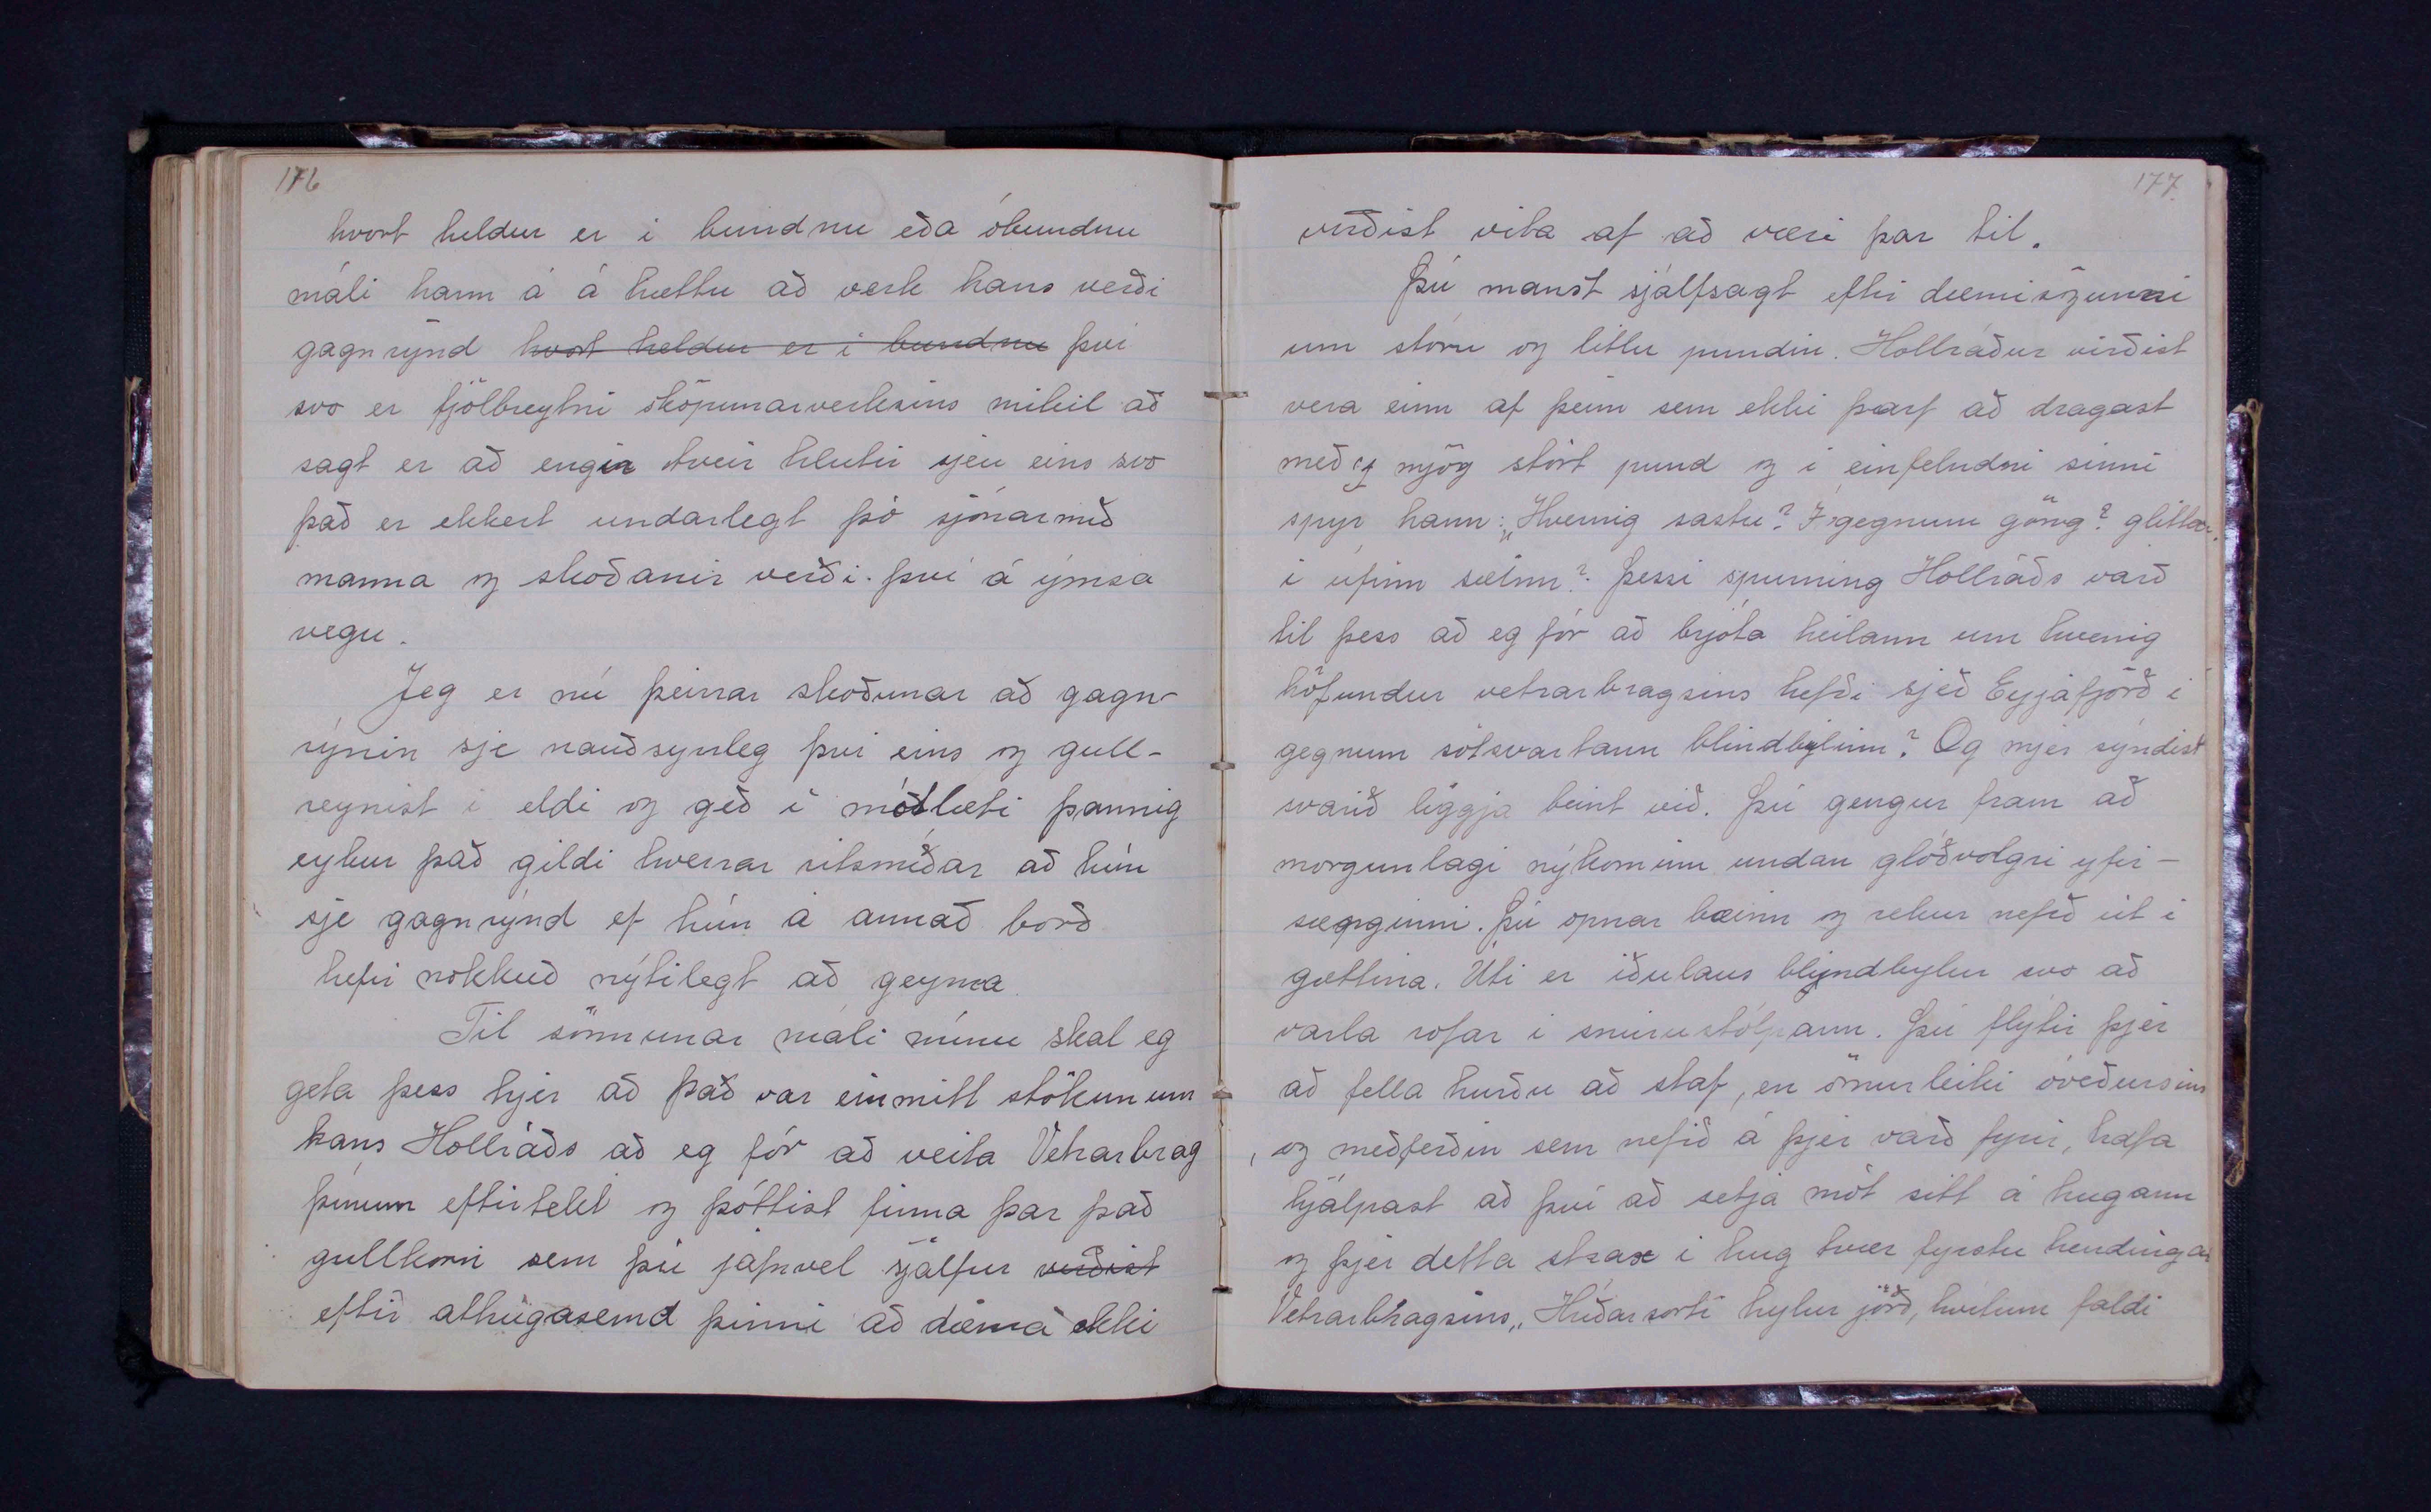 176
hvort heldur er í bundnu eða óbundnu
máli hann á á hættu að verk hans verði
gagnrýnd hvort heldur er í bundnu því
svo er fjölbreytni sköpunarverksins mikil að
sagt er að engir tveir hlutir sjeu eins svo
það er ekkert undarlegt þó sjónarmið
manna og skoðanir verði því á ýmsa
vegu.
Jeg er nú þeirrar skoðunar að gagn-
rýnin sje nauðsynleg því eins og gull-
reynist í eldi og geð í mótlæti þannig
eykur það gildi hverrar ritsmíðar að hún
sje gagnrýnd ef hún á annað borð
hefir nokkuð nýtilegt að geyma
Til sönnunar máli mínu skal eg
geta þess hjer að það var einmitt stökunum
hans Hollráðs að eg fór að veita Vetrarbrag
þínum eftirtekt og þóttist finna þar það
gullkorn sem þú jafnvel sjálfur virðist
eftir athugasemd þinni að dæma ekki
177.
virðist vita af að væri þar til.
Þú manst sjálfsagt eftir dæmisögunni
um stóru og litlu pundin. Hollráður virðist
vera einn af þeim sem ekki þarf að dragast
með mjög stórt pund og í einfeldni sinni
spyr hann: „Hvernig sástu? Í gegnum göng? glittar
í úfinn sæinn? Þessi spurning Hollráðs varð
til þess að eg fór að brjóta heilann um hvernig
höfundur vetrarbragsins hefði sjeð Eyjafjörð í
gegnum sótsvartann blindbylinn? Og mjer sýndist
svarið liggja beint við. Þú gengur fram að
morgunlagi nýkominn undan glóðvolgri yfir-
sænginni. Þú opnar bæinn og rekur nefið út í
gættina. Úti er iðulaus blindbylur svo að
varla rofar í snúrustólpann. Þú flýtir þjer
að fella hurðu að staf, en ömurleiki óveðursins
og meðferðin sem nefið á þjer varð fyrir, hafa
hjálpast að því að setja mót sitt á hugann
og þjer detta strax í hug tvær fyrstu hendingar
Vetrarbragsins „Hríðarsorti hylur jörð, hvítum faldi